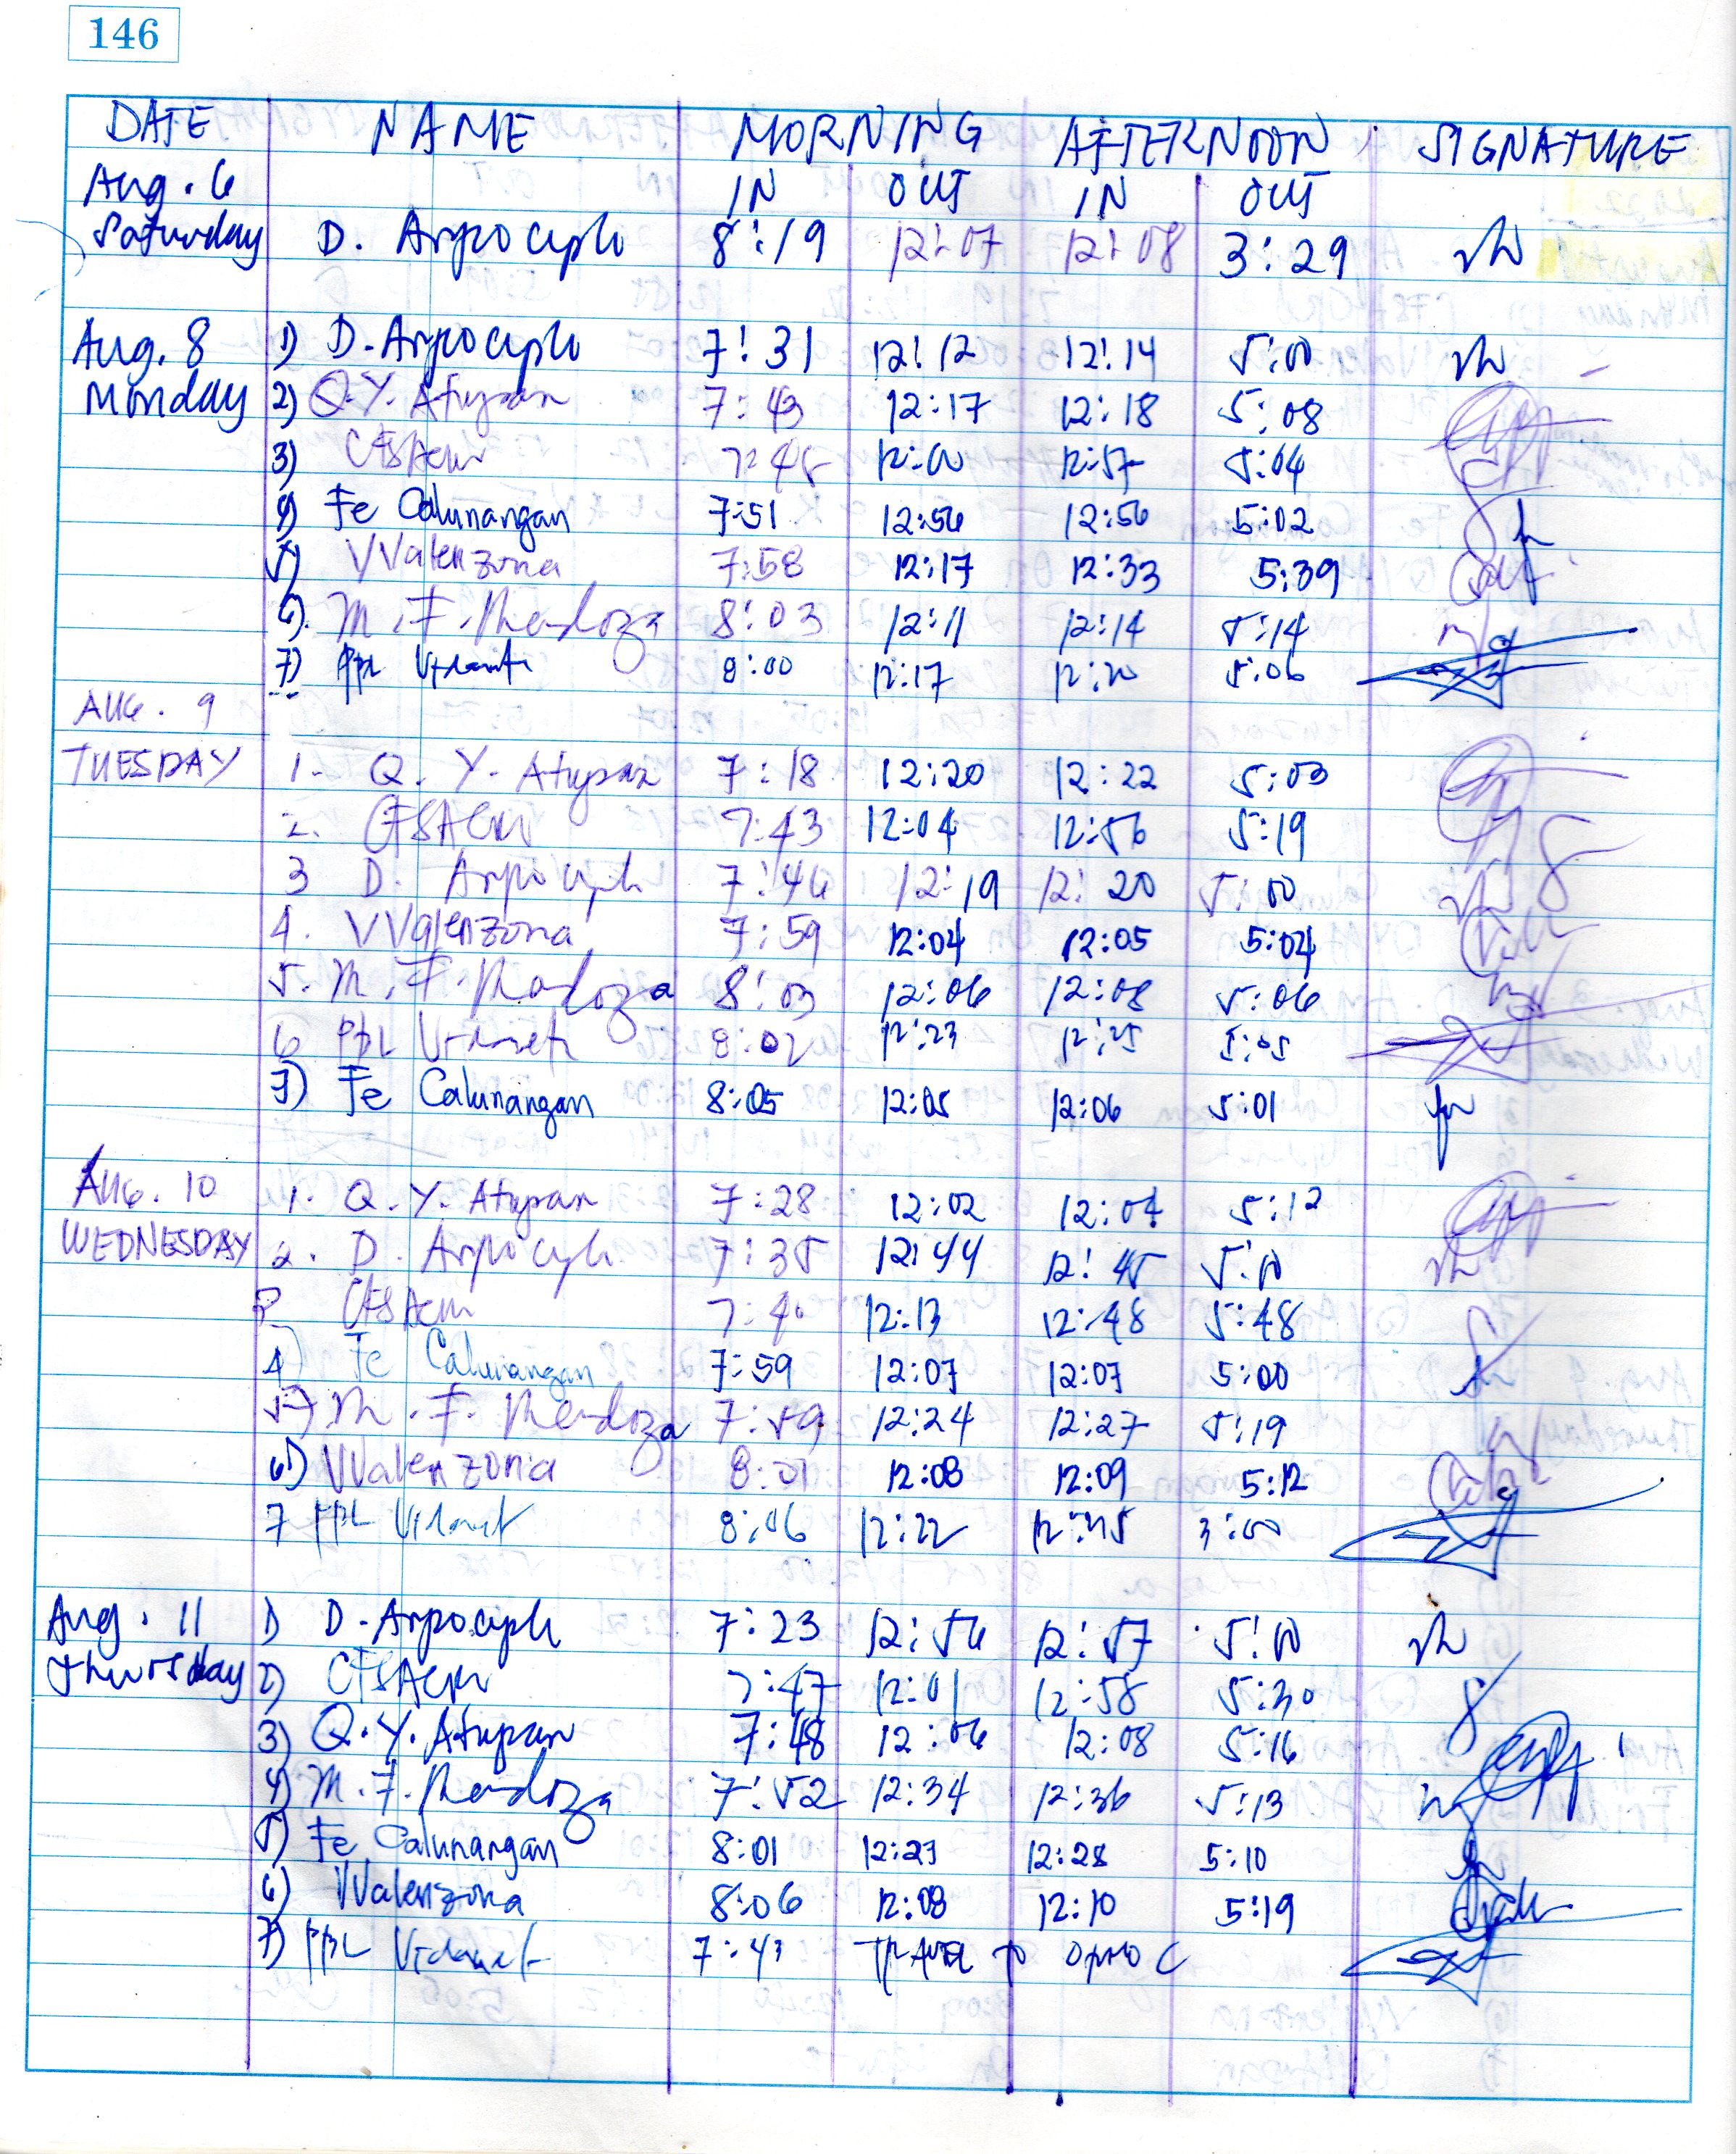 146
DATE NAME MORNING AFTERNOON SIGNATURE
Aug. 6 IN OUT IN OUT
Saturday D. Arpoceplo 8:19 12:07 12:08 3:29
Aug. 8 1) D. Arpoceplo 7:31 12:12 12:14 5:00
Monday 2) Q.Y. Atupan 7:43 12:17 12:18 5:08
3) 7:45 12:00 12:57 5:04
4) Fe Calunangan 7:51 12:56 12:56 5:02
5) VValenzona 7:58 12:17 12:33 5:39
6) M.F. Mendoza 8:03 12:11 12:14 5:14
7) PPL 8:00 12:17 12:20 5:06
AUG. 9
TUESDAY 1. Q. Y. Atupan 7:18 12:20 12:22 5:03
2. 7:43 12:04 12:56 5:19
3 D. 7:46 12:19 12:20 5:00
4. VValenzona 7:59 12:04 12:05 5:04
5. M. F. Mendoza 8:03 12:06 12:08 5:06
6 PPL 8:02 12:23 12:25 5:05
7) Fe Calunangan 8:05 12:05 12:06 5:01
AUG. 10 1. Q. Y. Atupan 7:28 12:02 12:04 5:12
WEDNESDAY 2. D. 7:35 12:44 12:45 5:00
3 12:13 12:48 5:48
4) Fe Calunangan 7:59 12:07 12:07 5:00
5) M. F. Mendoza 7:59 12:24 12:27 5:19
6) VValenzona 8:01 12:08 12:09 5:12
7 PPL 8:06 12:22 3:00
Aug. 11 1) D. Arpoceplo 7:23 12:56 12:57 5:00
Thursday 2) 7:47 12:01 12:58 5:30
3) Q.Y. Atupan 7:48 12:06 12:08 5:16
4) M.F. Mendoza 7:52 12:34 12:36 5:13
5) Fe Calunangan 8:01 12:23 12:28 5:10
6) VValenzona 8:06 12:08 12:10 5:19
7) PPL 7:43 TRAVEL TO